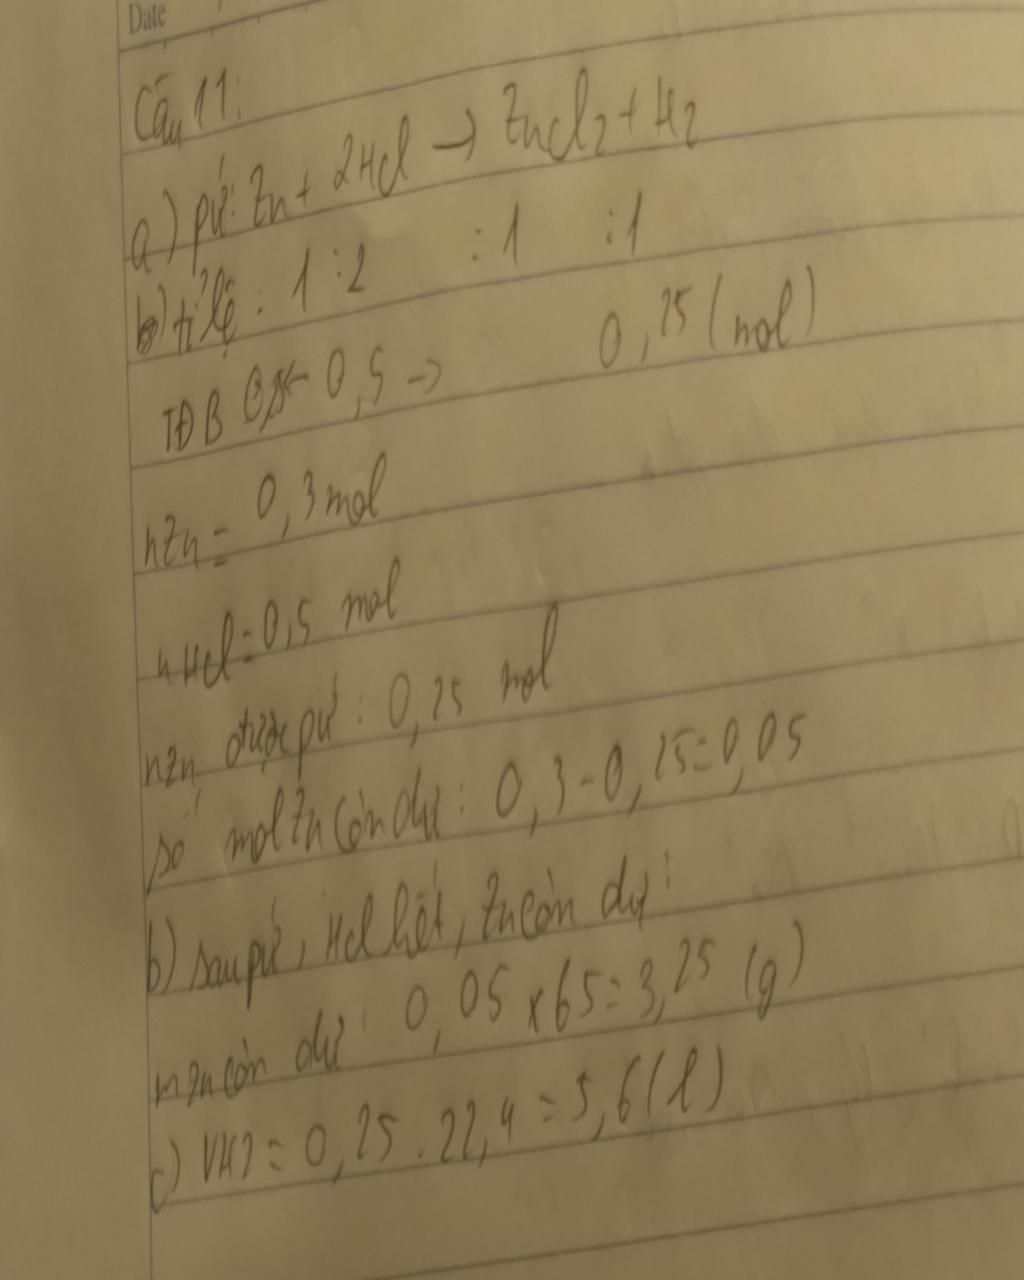 Date
Câu 11:
a) pứ: Zn + 2HCl → ZnCl2 + H2
b) tỉ lệ : 1 : 2 : 1 : 1
TĐB ← 0,5 → 0,25 (mol)
nZn = 0,3 mol
nHCl = 0,5 mol
nZn được pứ : 0,25 mol
số mol Zn còn dư : 0,3 - 0,25 = 0,05
b) sau pứ, HCl hết, Zn còn dư :
mZn còn dư : 0,05 x 65 = 3,25 (g)
c) VH2 = 0,25 . 22,4 = 5,6 (l)